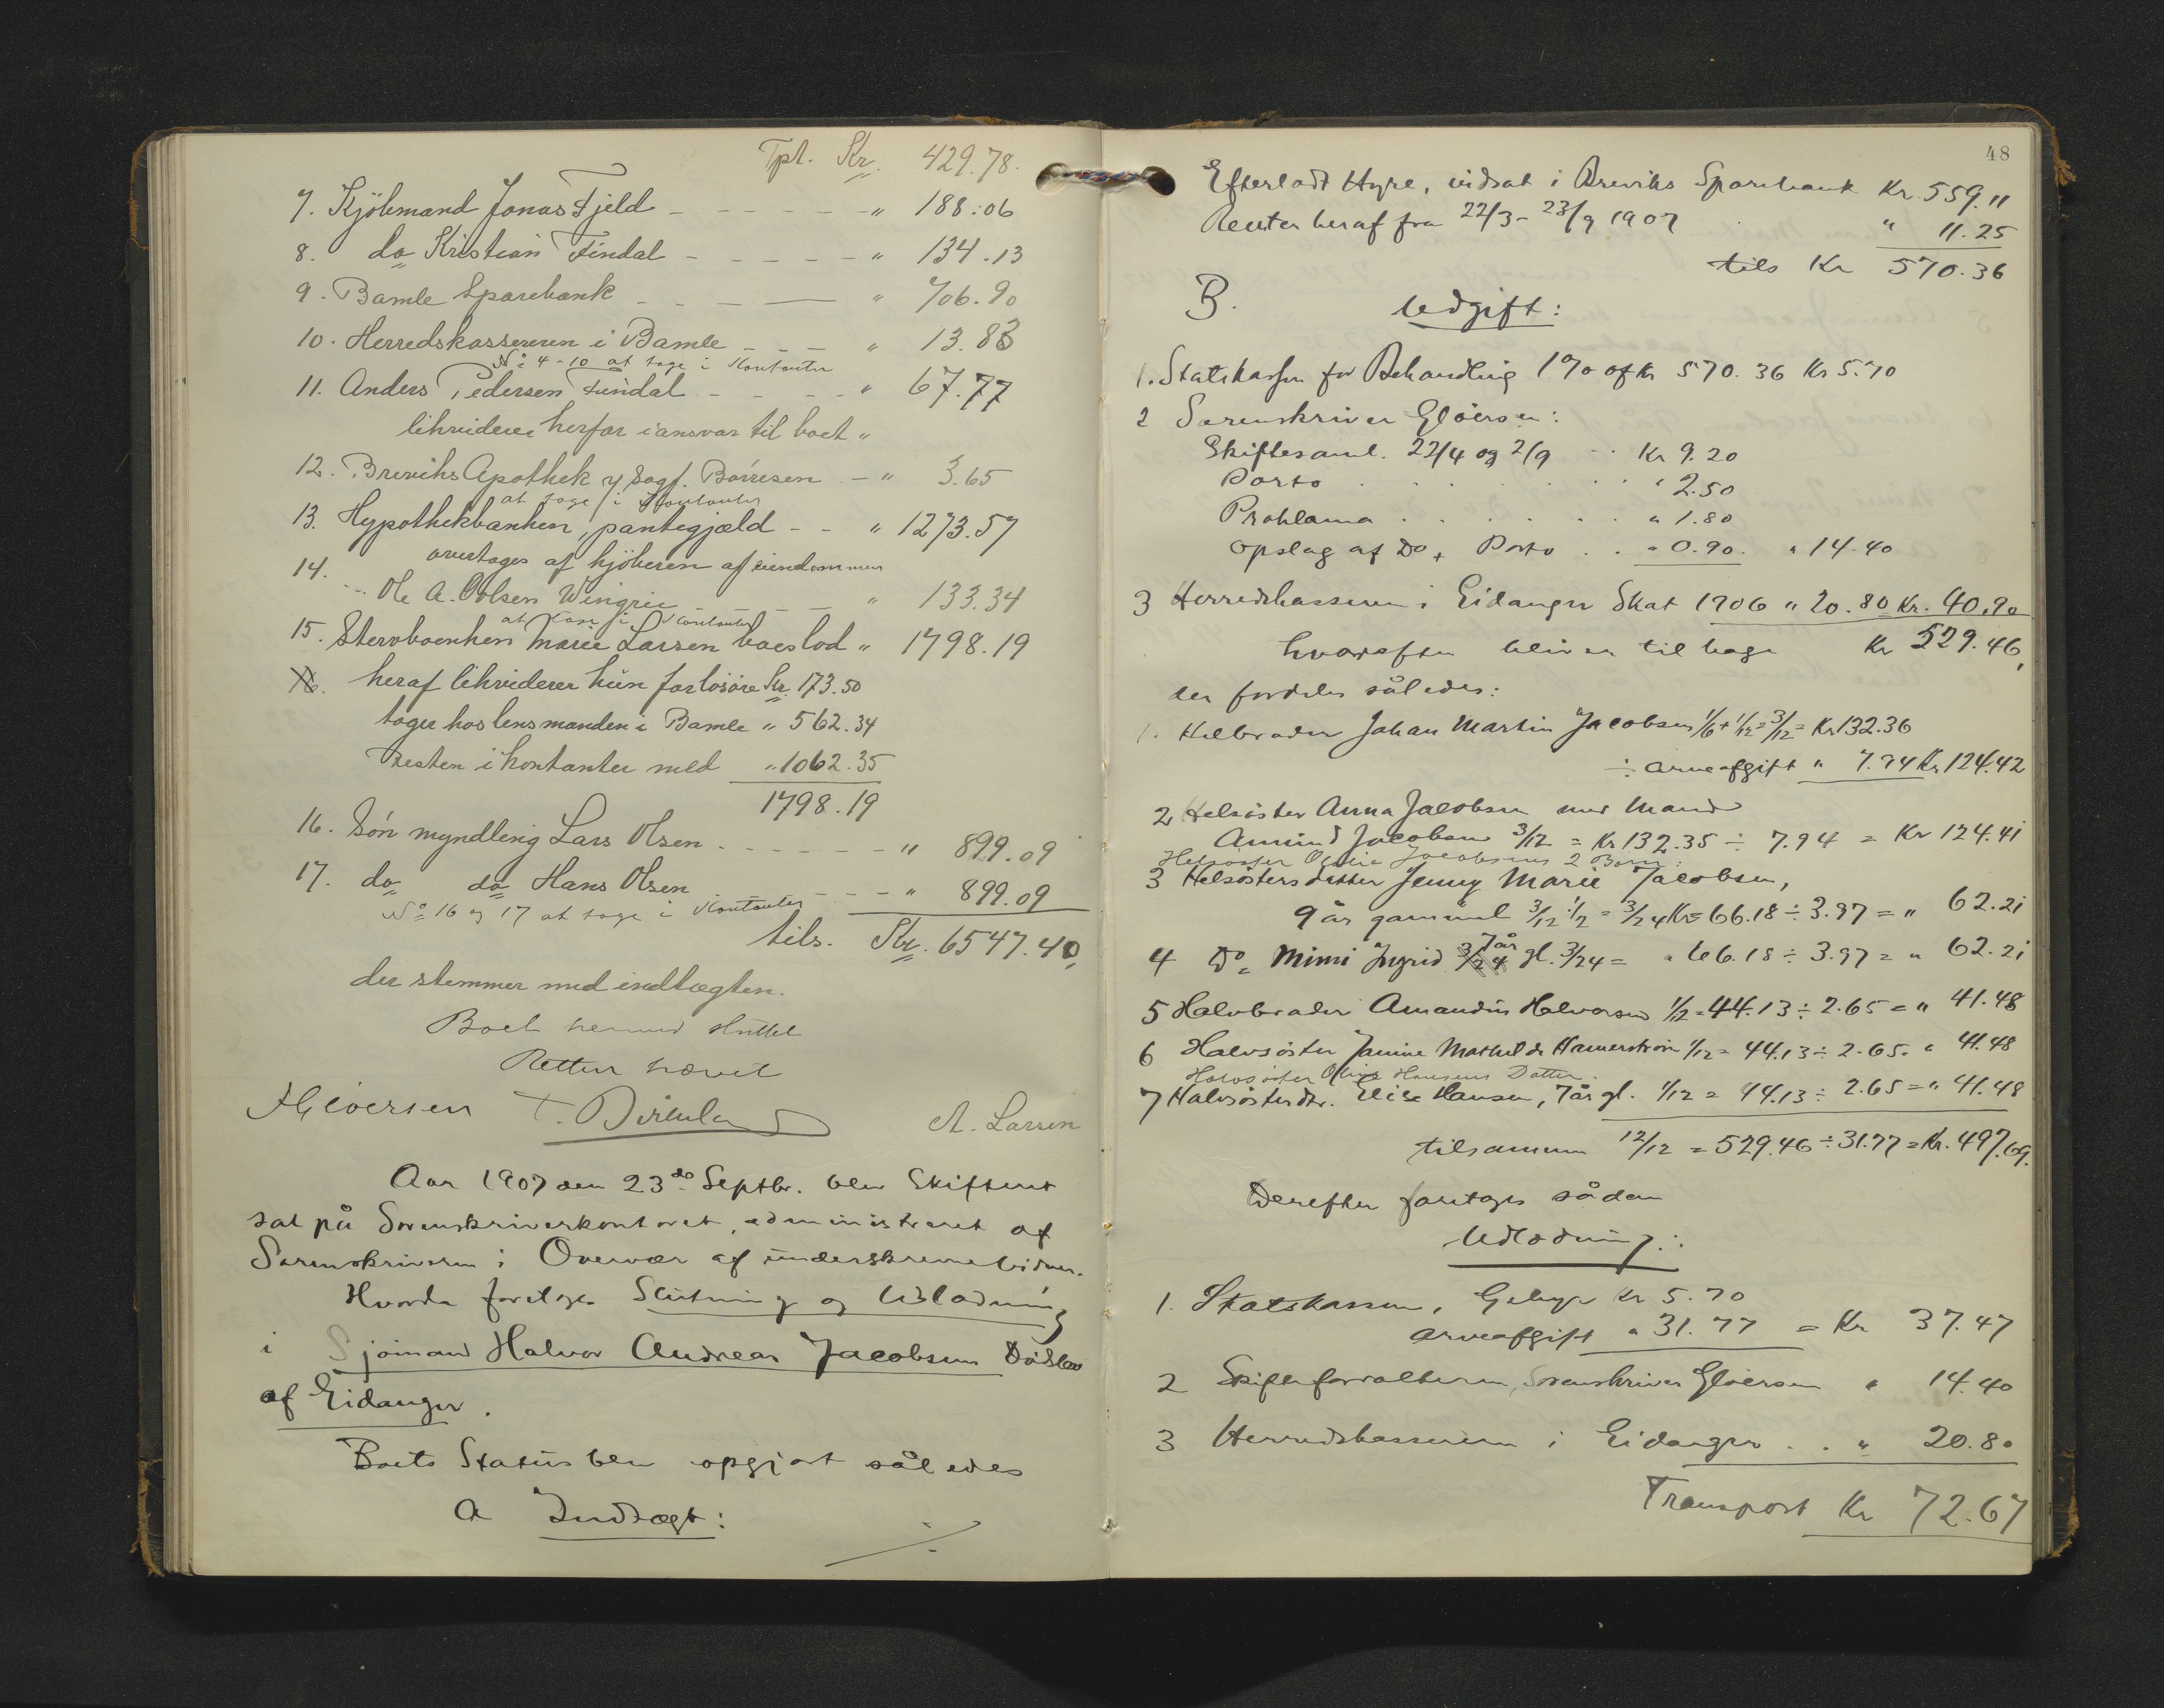 Tpt. Kr. 429.78.
7. Kjöbmand Jonas Fjeld - - - - - " 188.06
8. do Kristian Findal - - - - - " 134.13
9. Bamle Sparebank - - - — " 706.90
10. Herredskassereren i Bamle - - - " 13.83
No 4-10 at tage i Kontanter
11. Anders Pedersen Findal - - - - " 67.77
likviderer herfor i ansvar til boet "
12. Breviks Apothek v/ Sagf. Börresen - " 3.65
at tage i Kontanter
13. Hypothekbanken, pantegjæld - - " 1273.57
overtages af kjöberen af eiendommen
14. Ole A. Olsen Wingrei - - - - " 133.34
at tage i Kontanter
15. Stervboenken Marie Larsen boeslod " 1798.19
heraf likviderer hun for lösöre Kr. 173.50
tager hos lensmanden i Bamle " 562.34
Resten i kontanter med " 1062.35
1798.19
16. Sön myndling Lars Olsen - - - - - " 899.09
17. do do Hans Olsen - - - - " 899.09
No 16 og 17 at tage i Kontanter
tils. Kr. 6547.40,
der stemmer med indtægten.
Boet hermed sluttet
Retten hævet
Gløersen T. A. Larsen
Aar 1907 den 23de Septbr. blev Skifteret
sat på Sorenskriverkontoret, administreret af
Sorenskriveren i Overvær af underskrevne Vidner.
Hvorda foretoges Slutning og Udlodning
i Sjömand Halvor Andreas Jacobsens Dödsbo
af Eidanger.
Boets Status blev opgjort således
A Indtægt:
./.
48
Efterladt Hyre, indsat i Breviks Sparebank Kr. 559.11
Renter heraf fra 22/3 - 23/9 1907 " 11.25
tils Kr 570.36
B. Udgift:
1. Statskassen for Behandling 1% af Kr 570.36 Kr 5.70
2 Sorenskriver Gløersen:
Skiftesaml. 22/4 og 2/9 - . Kr 9.20
Porto . . . . . . " 2.50
Proklama . . . . . . " 1.80
Opslag af Do + Porto . . " 0.90. " 14.40
3 Herredskasseren i Eidanger Skat 1906 " 20.80 Kr. 40.90
hvorefter bliver tilbage Kr 529.46,
der fordeles således:
1. Helbroder Johan Martin Jacobsen 1/6 + 1/12 = 3/12 = Kr 132.36
÷ arveafgift " 7.94 Kr 124.42
2 Helsöster Anna Jacobsen med Mand
Amund Jacobsen 3/12 = Kr 132.35 ÷ 7.94 = Kr 124.41
Helsöster Jacobsens 2 Børn:
3 Helsösters datter Jenny Marie Jacobsen,
9 år gammel 3/12 1/2 = 3/24 Kr = 66.18 ÷ 3.97 = " 62.21
4 Do Mimi Ingrid 3/24 7 år gl. 3/24 = " 66.18 ÷ 3.97 = " 62.21
5 Halvbroder Amandus Halvorsen 1/12 = 44.13 ÷ 2.65 = " 41.48
6 Halvsöster Janine Mathilde Hamerström 1/12 = 44.13 ÷ 2.65. " 41.48
Halvsöster Hansens Datter
7 Halvsösterdtr. Elise Hansen, 7 år gl. 1/12 = 44.13 ÷ 2.65 = " 41.48
tilsammen 12/12 = 529.46 ÷ 31.77 = Kr. 497.69.
Derefter foretoges sådan
Udlodning:
1. Statskassen, Gebyr Kr 5.70
arveafgift " 31.77 = Kr 37.47
2 Skifteforvalteren, Sorenskriver Gløersen " 14.40
3 Herredskasseren i Eidanger . . " 20.80
Transport Kr 72.67